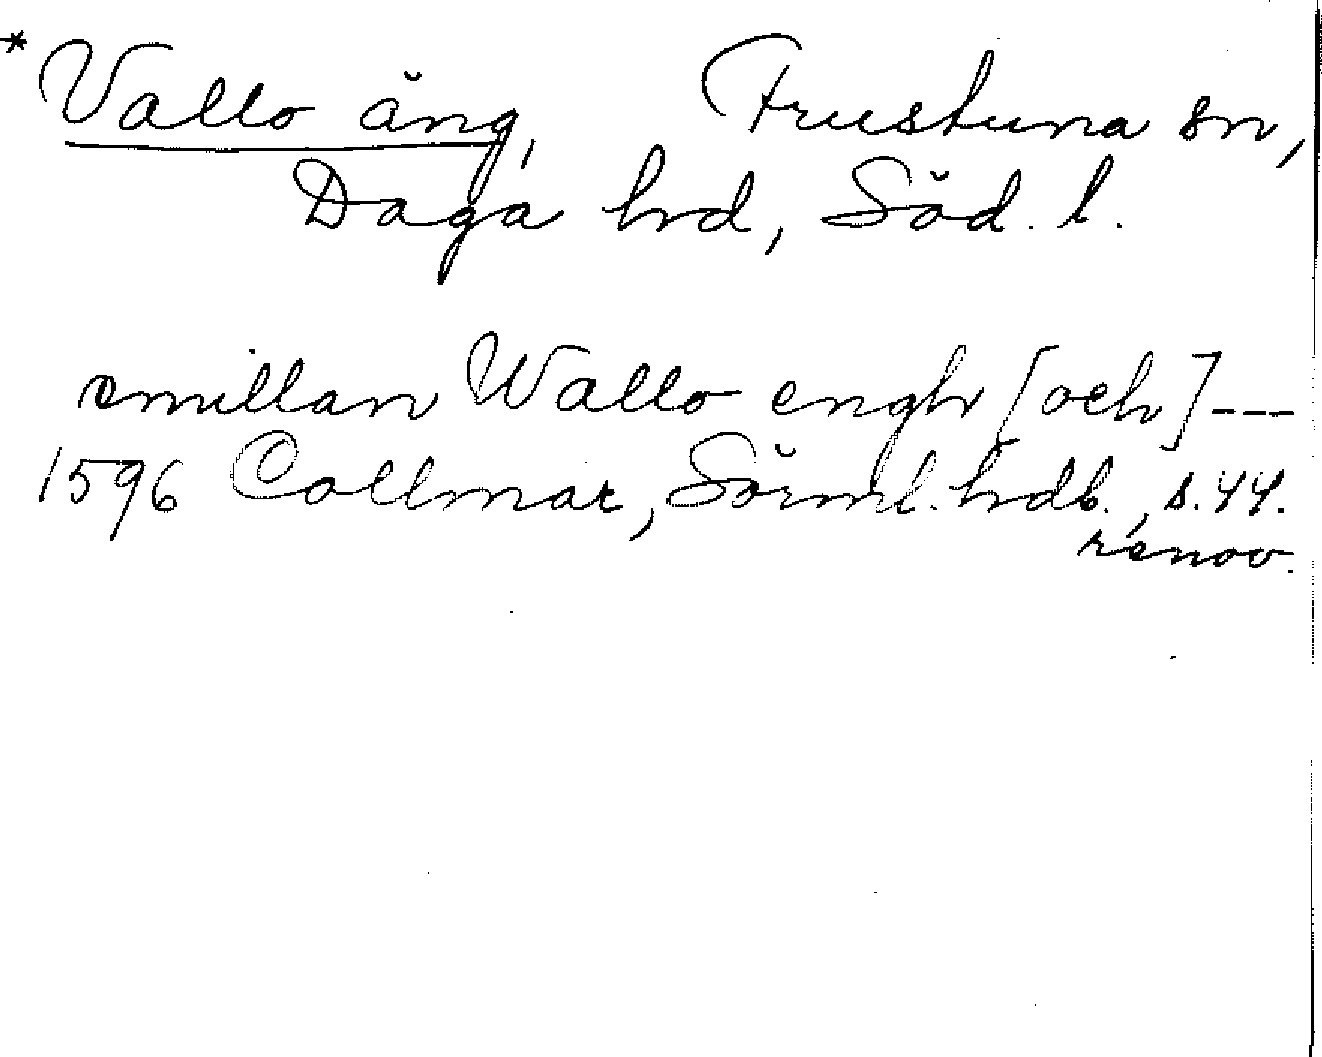 *Vallo äng, Frustuna sn,
Daga hd, Söd. l.
emillan Wallo engh [och] ---
1596 Collmar, Sörml. hdb., s. 44.
renov.